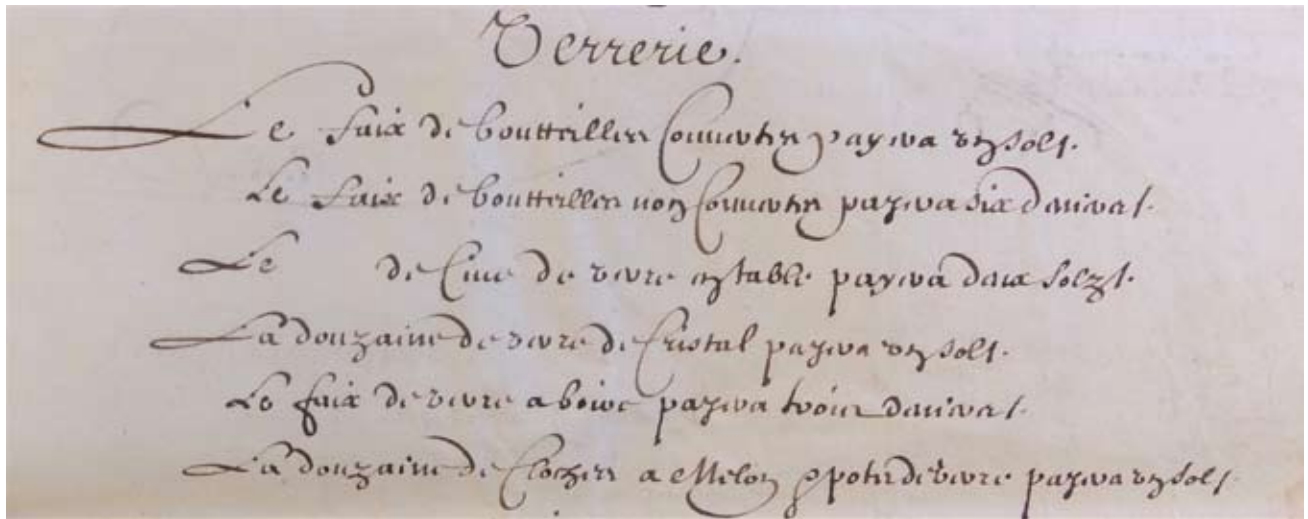 Verrerie.
Le faix de boutteilles Couuertes payera vng solt.
Le faix de boutteilles non Couuertes payera six deniers t.
Le de de verre en table payera deux solz t.
La douzaine de verre de Cristal payera vng solt.
Le faix de verre a boire payera trois deniers t.
La douzaine de Cloches a Melon & potz de verre payera vng solt